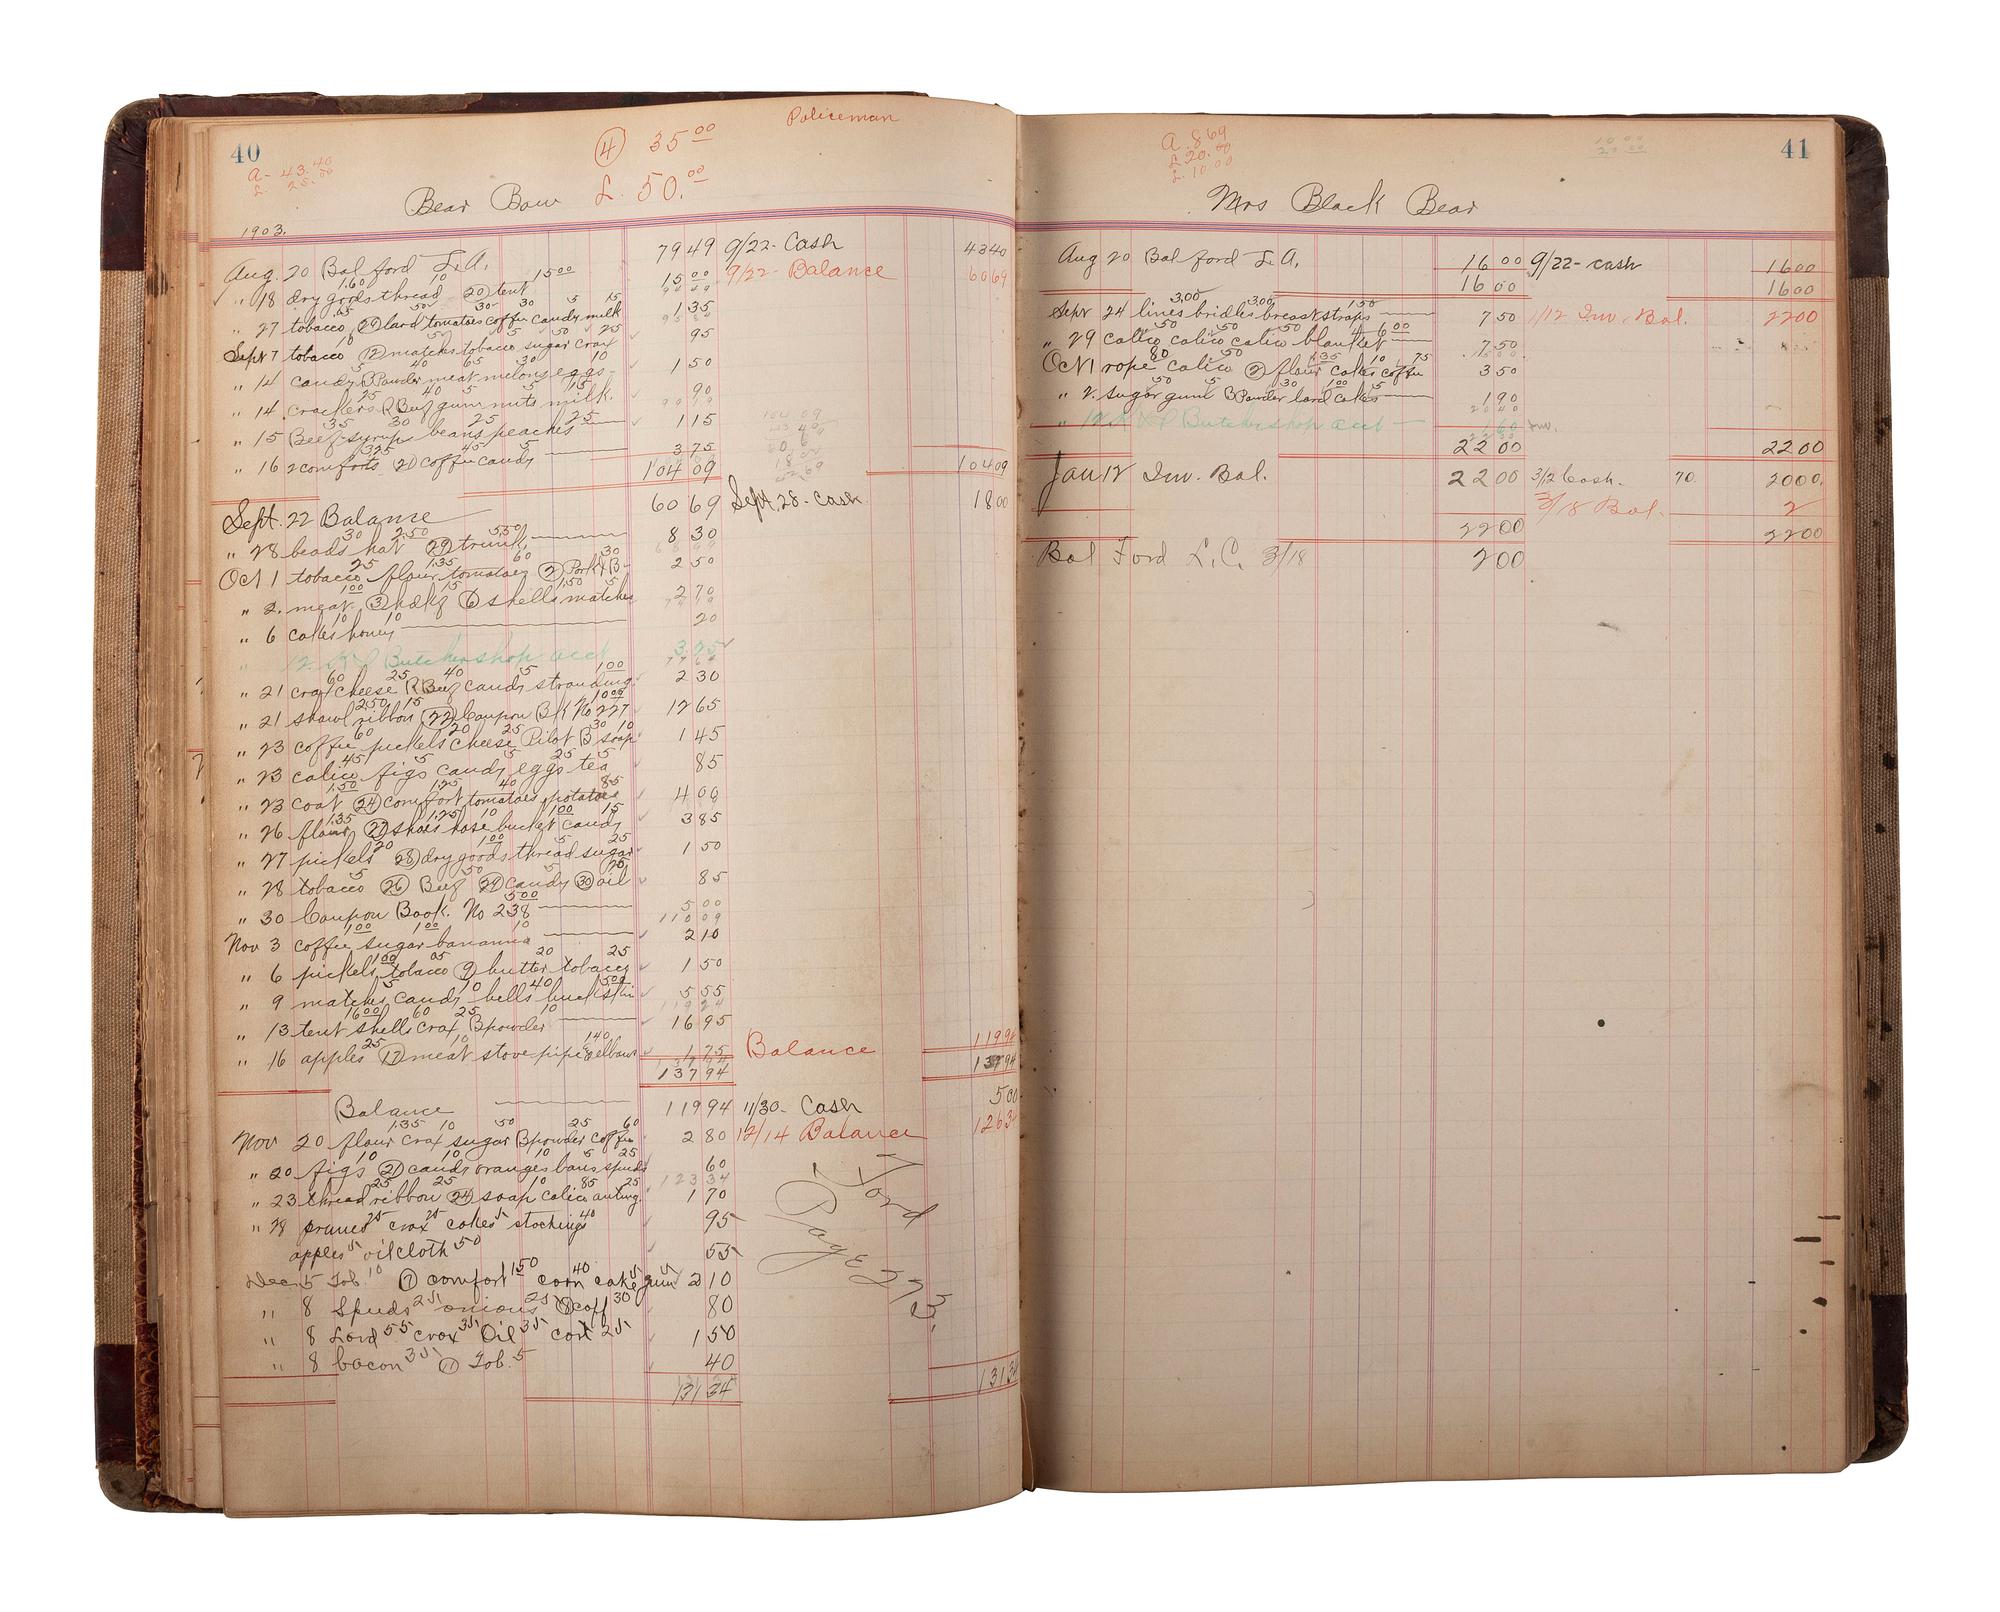 40
A- 43.40
L. 25.00
④ 35.00
Policeman
Bear Bow L. 50.00
1903.
Aug. 20 Bal ford L.A. 79 49 9/22- Cash 43 40
" 18 dry goods 1.60 thread 10 (20) tent 15 00 15 00 9/22- Balance 60 69
" 27 tobacco (29) lard tomatoes coffee candy milk 1 35
Sept 7 tobacco (12) matches tobacco sugar crax 95
" 14 candy B Powder meat melons eggs 1 50
" 14 crackers R Beef gum nuts milk. 90
" 15 Beef syrup beans peaches 1 15
" 16 2 comforts (21) coffee candy 3 75
104 09 104 09
Sept. 22 Balance 60 69 Sept. 28- Cash 18 00
" 28 beads 30 hat 2.50 (29) trunk 5.50 8 30
Oct 1 tobacco 25 flour 1.35 tomatoes 60 (2) Pork & B 30 2 50
" 2. meat 1.00 (3) hdkf 15 (6) shells 1.50 matches 5 2 70
" 6 cakes 10 honey 10 20
" 12. Butchershop acct 3.25
" 21 crax 60 cheese 25 R Beef 40 candy 5 strouding 1.00 2 30
" 21 shawl 2.50 ribbon 15 (22) Coupon Bk No 227 10.00 12 65
" 23 coffee 60 pickels 20 cheese 25 Pilot B 30 soap 10 1 45
" 23 calico 45 figs 5 candy 5 eggs 25 tea 5 85
" 23 coat 1.50 (24) comfort 1.25 tomatoes 40 potatoes 85 4 00
" 26 flour 1.35 (27) shoes 1.25 hose 10 bucket 1.00 candy 15 3 85
" 27 pickels 20 (28) dry goods 1.00 thread 5 sugar 25 1 50
" 28 tobacco 5 (26) Beef 50 (29) candy 5 (30) oil 25 85
" 30 Coupon Book. No 238 5.00 5 00
Nov 3 coffee 1.00 sugar 1.00 bananna 10 2 10
" 6 pickels tobacco (9) butter 20 tobacco 25 1 50
" 9 matches 5 candy 10 bells 40 buckskin 5.00 5 55
" 13 tent 16.00 shells 60 crax 25 Bpowder 10 16 95
" 16 apples 25 (17) meat 10 stove pipe 2 elbows 1.40 1 75 Balance 119 94
137 94 137 94
Balance 119 94 11/30- Cash 5 00
Nov 20 flour 1.35 crax 10 sugar 50 Bpowder 25 coffee 60 2 80 12/14 Balance
" 20 figs 10 (21) candy 10 oranges 10 buns 5 spuds 25 60
" 23 thread 25 ribbon 25 (24) soap 10 calico 85 outing. 25 1 70
" 28 prunes 25 crax 25 cakes 5 stockings 40 95
apples 5 oilcloth 50 55
Dec 5 Tob. 10 (7) comfort 1.50 corn 40 cake 5 gum 5 2 10
" 8 Spuds 25 onions 25 (8) coff 30 80
" 8 Lard 55 crax 35 Oil 35 corn 25 1 50
" 8 bacon 35 (7) Tob. 5 40
131 34 131 34
Ford
Page 273.
41
A. 8.69
L. 20.00
L. 10.00
10.00
20.00
Mrs Black Bear
Aug 20 Bal ford L.A. 16 00 9/22- cash 16 00
16 00 16 00
Sept 24 lines 3.00 bridles 3.00 breast straps 1.50 7 50 1/12 Inv. Bal. 22 00
" 29 calico 50 calico 50 calico 50 blanket 6.00 7 50
Oct 1 rope 80 calico 50 (2) flour 1.35 cakes 10 coffee 75 3 50
" 2. sugar 50 gum 5 B Powder 30 lard 1.00 cakes 5 1 90
" 12. Butchershop acct 1 60 Inv.
22 00 22 00
Jan 12 Inv. Bal. 22 00 3/12 Cash. 70. 20 00.
3/18 Bal. 2
22 00 22 00
Bal Ford L.C. 3/18 2 00